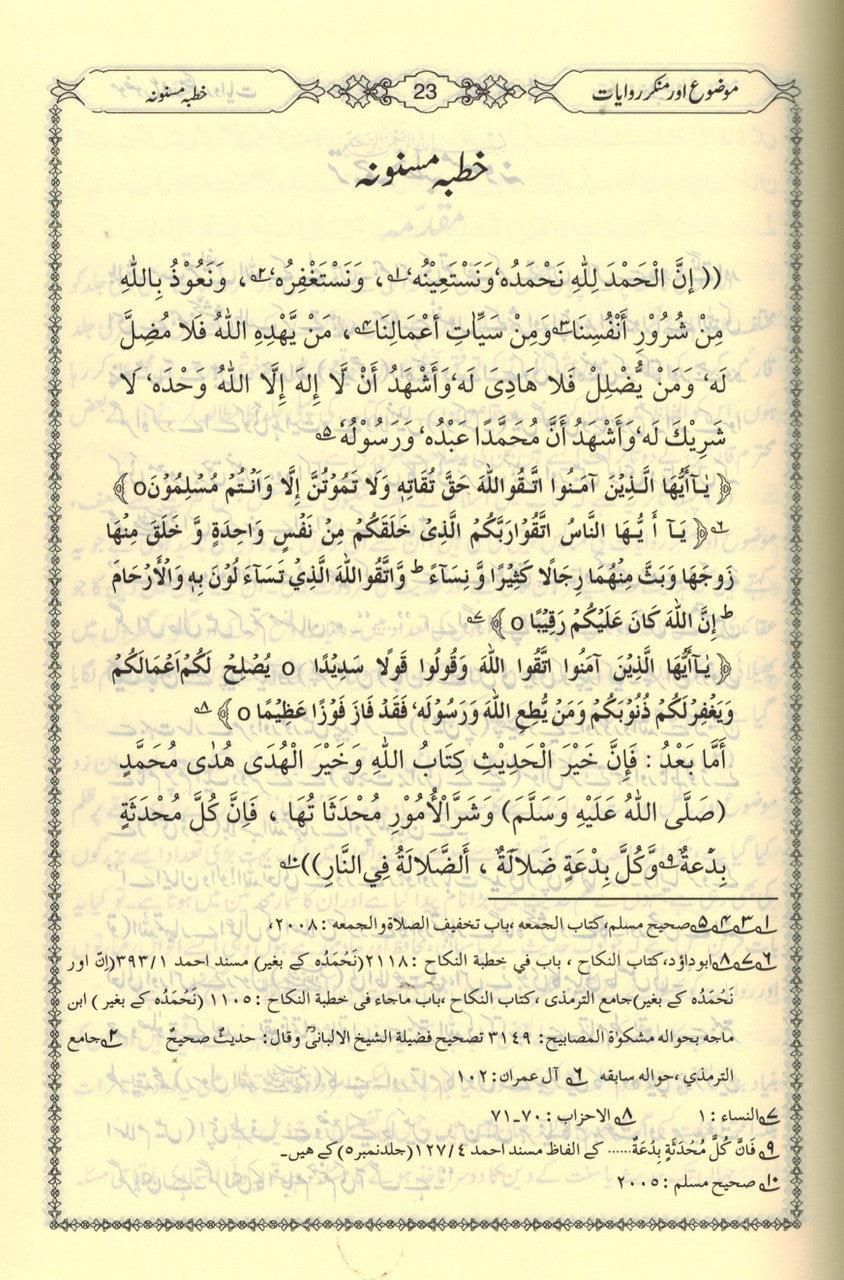 موضوع اور منکر روایات 23 خطبہ مسنونہ
خطبہ مسنونہ
(( إِنَّ الْحَمْدَ لِلّٰهِ نَحْمَدُهٗ وَنَسْتَعِيْنُهٗ ۱؎، وَنَسْتَغْفِرُهٗ ۲؎، وَنَعُوْذُ بِاللّٰهِ
مِنْ شُرُوْرِ أَنْفُسِنَا ۳؎ وَمِنْ سَيِّاٰتِ أَعْمَالِنَا ۴؎، مَنْ يَّهْدِهِ اللّٰهُ فَلَا مُضِلَّ
لَهٗ وَمَنْ يُّضْلِلْ فَلَا هَادِىَ لَهٗ وَأَشْهَدُ أَنْ لَّا إِلٰهَ إِلَّا اللّٰهُ وَحْدَهٗ لَا
شَرِيْكَ لَهٗ وَأَشْهَدُ أَنَّ مُحَمَّدًا عَبْدُهٗ وَرَسُوْلُهٗ ۵؎
﴿ يٰۤاأَيُّهَا الَّذِيْنَ آمَنُوا اتَّقُوا اللّٰهَ حَقَّ تُقَاتِهٖ وَلَا تَمُوْتُنَّ إِلَّا وَاَنْتُمْ مُسْلِمُوْنَ o ﴾
۶؎ ﴿ يَآ أَ يُّهَا النَّاسُ اتَّقُوْا رَبَّكُمُ الَّذِىْ خَلَقَكُمْ مِنْ نَفْسٍ وَاحِدَةٍ وَّ خَلَقَ مِنْهَا
زَوجَهَا وَبَثَّ مِنْهُمَا رِجَالًا كَثِيْرًا وَّ نِسَآءً ط وَّاتَّقُوا اللّٰهَ الَّذِيْ تَسَآءَ لُوْنَ بِهٖ وَالْأَرْحَامَ
ط إِنَّ اللّٰهَ كَانَ عَلَيْكُمْ رَقِيْبًا o ﴾ ۷؎
﴿ يٰۤاأَيُّهَا الَّذِيْنَ آمَنُوا اتَّقُوا اللّٰهَ وَقُولُوا قَولًا سَدِيْدًا o يُصْلِحْ لَكُمْ اَعْمَالَكُمْ
وَيَغْفِرْلَكُمْ ذُنُوْبَكُمْ وَمَنْ يُّطِعِ اللّٰهَ وَرَسُوْلَهٗ فَقَدْ فَازَ فَوْزًا عَظِيْمًا o ﴾ ۸؎
أَمَّا بَعْدُ : فَإِنَّ خَيْرَ الْحَدِيْثِ كِتَابُ اللّٰهِ وَخَيْرَ الْهُدَى هُدٰى مُحَمَّدٍ
(صَلَّى اللّٰهُ عَلَيْهِ وَسَلَّمَ) وَشَرَّالْأُمُوْرِ مُحْدَثَا تُهَا ، فَاِنَّ كُلَّ مُحْدَثَةٍ
بِدْعَةٌ ۹؎ وَّكُلَّ بِدْعَةٍ ضَلَالَةٌ ، أَلضَّلَالَةُ فِي النَّارِ )) ۱۰؎
۱؎ ۳؎ ۴؎ ۵؎ صحیح مسلم، کتاب الجمعه ،باب تخفیف الصلاة و الجمعه :۲۰۰۸،
۶؎ ۷؎ ۸؎ ابوداؤد،کتاب النکاح ، باب في خطبة النکاح :۲۱۱۸(نَحْمَدُہ کے بغیر) مسند احمد ۳۹۳/۱(اِنَّ اور
نَحْمَدُہ کے بغیر)جامع الترمذی ،کتاب النکاح ،باب ماجاء فی خطبة النکاح :۱۱۰۵ (نَحْمَدُہ کے بغیر ) ابن
ماجه بحواله مشکوٰة المصابیح: ۳۱۴۹ تصحیح فضیلة الشیخ الالبانیؒ وقال: حدیثٌ صحیحٌ ۲؎ جامع
الترمذی ،حواله سابقه ۶؎ آل عمران: ۱۰۲
۷؎ النساء : ۱ ۸؎ الاحزاب : ۷۰۔۷۱
۹؎ فَاِنَّ کُلَّ مُحْدَثَةٍ بِدْعَةٌ...... کے الفاظ مسند احمد ۱۲۷/۴(جلدنمبر ۵)کے هیں۔
۱۰؎ صحیح مسلم : ۲۰۰۵